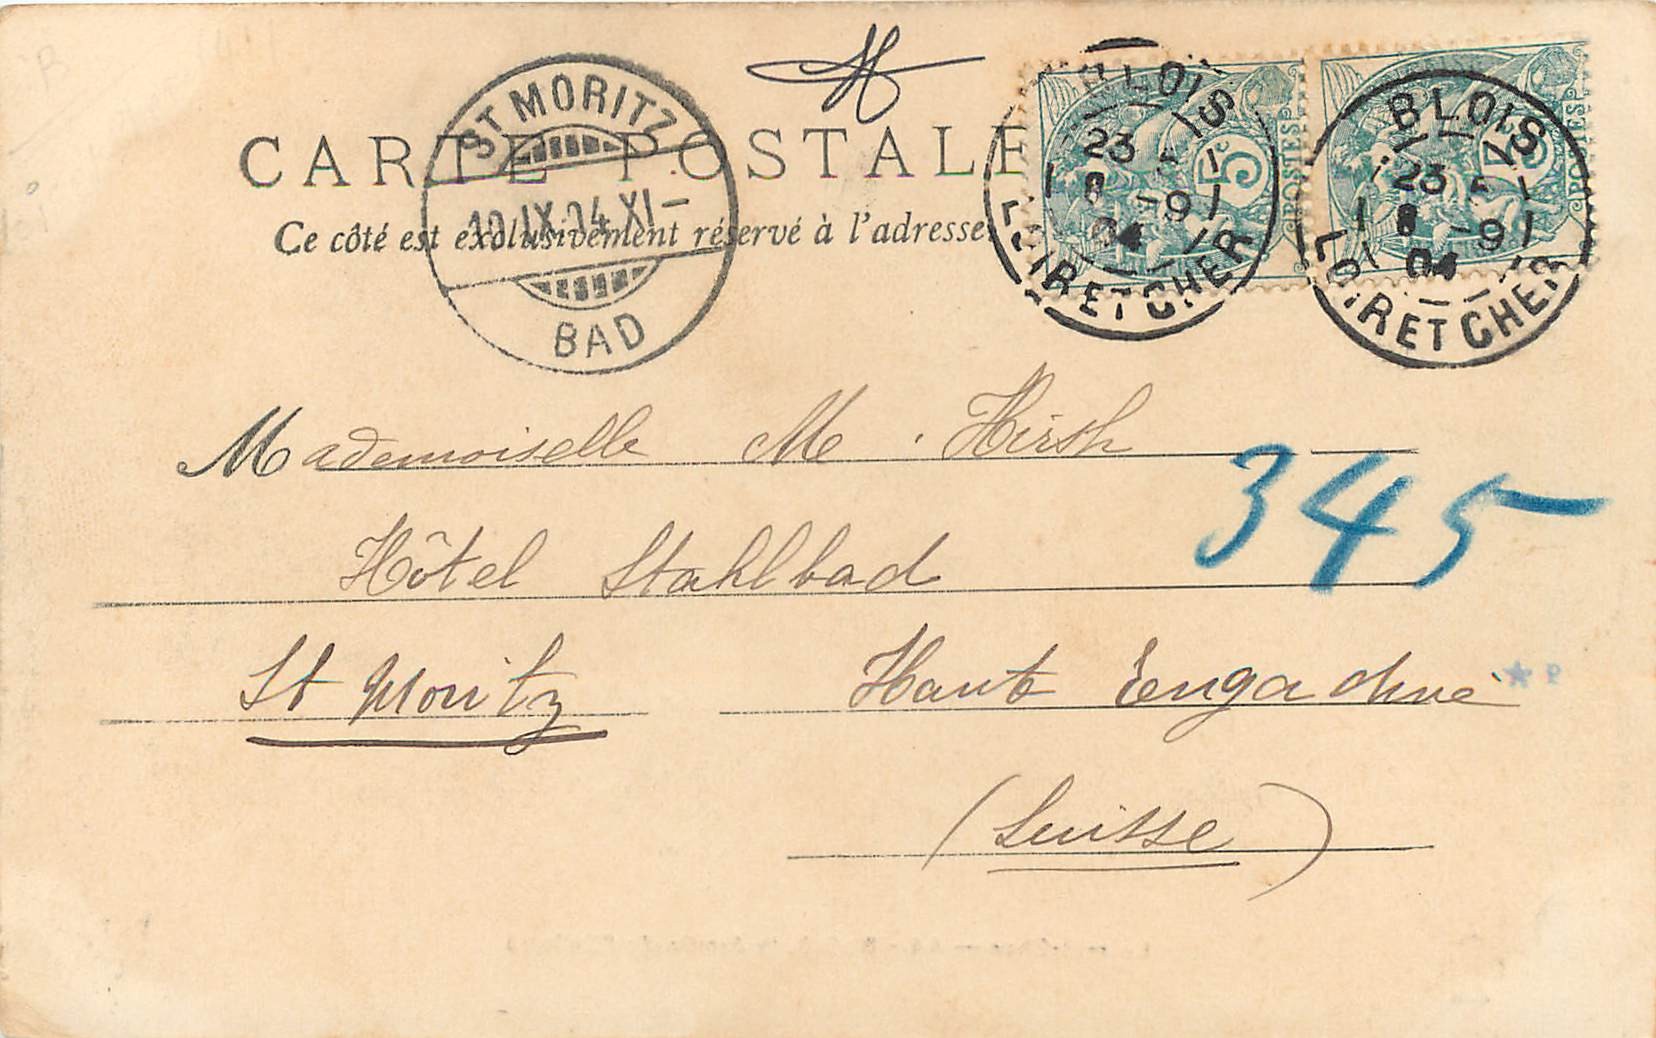 CARTE POSTALE
Ce côté est exclusivement réservé à l'adresse.
ST MORITZ
10.IX.04.XI–
BAD
BLOIS
23
8 -9
04
LOIR ET CHER
5c
POSTES
BLOIS
23
8 -9
04
LOIR ET CHER
5c
POSTES
Mademoiselle M. Hirsh
345
Hôtel Stahlbad
St Moritz Haute Engadine
(Suisse)